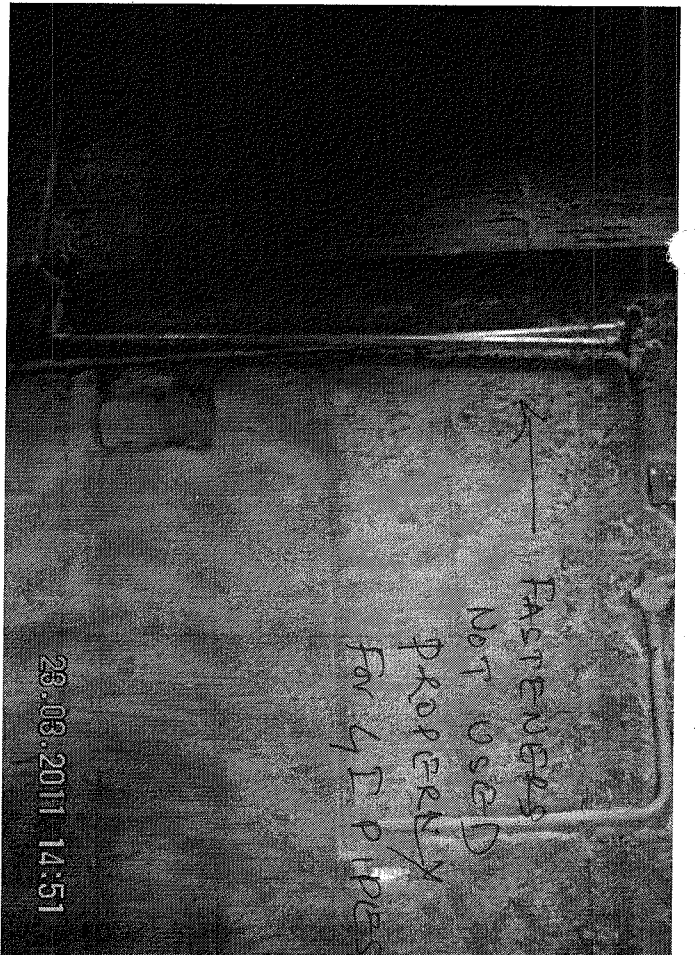 FASTENERS
NOT USED
PROPERLY
For GI PIPES
23.08.2011 14:51